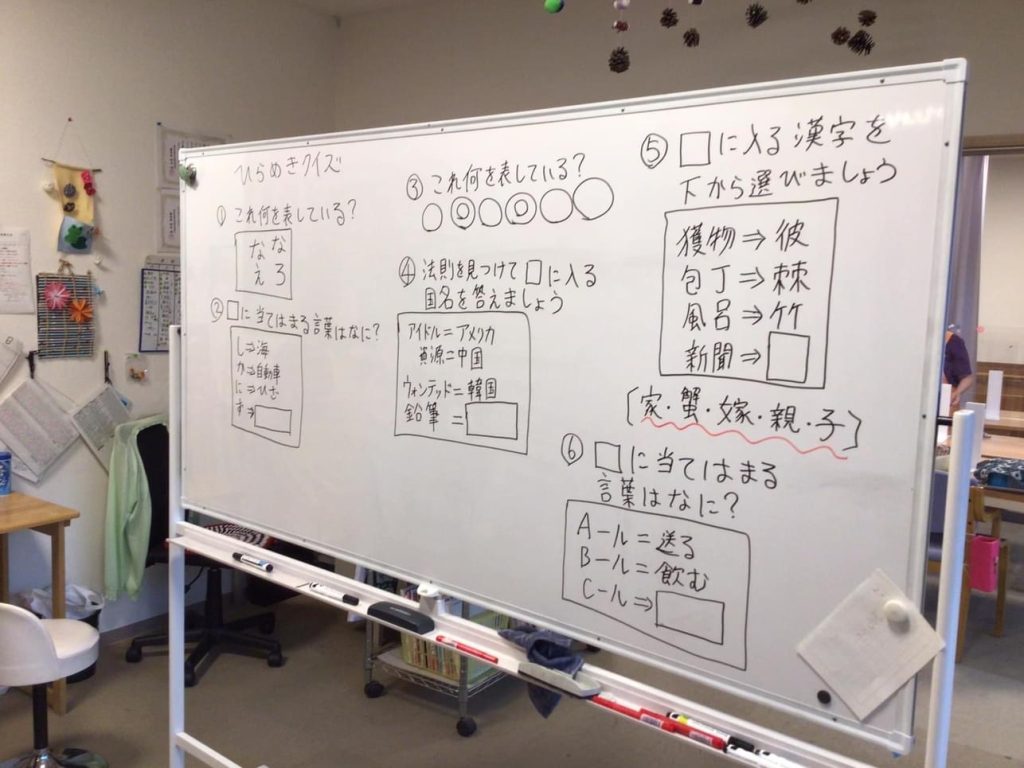 ひらめきクイズ
① これ何を表している?
なな
なろ
え
② □に当てはまる言葉はなに?
し⇒海
か⇒自動車
に⇒ひざ
す⇒□
③ これ何を表している?
○◎○◎○○
④ 法則を見つけて□に入る
国名を答えましょう
アイドル=アメリカ
資源=中国
ウォンテッド=韓国
鉛筆=□
⑤ □に入る漢字を
下から選びましょう
獲物⇒彼
包丁⇒棘
風呂⇒竹
新聞⇒□
〔家・蟹・嫁・親・子〕
⑥ □に当てはまる
言葉はなに?
Aール=送る
Bール=飲む
Cール⇒□